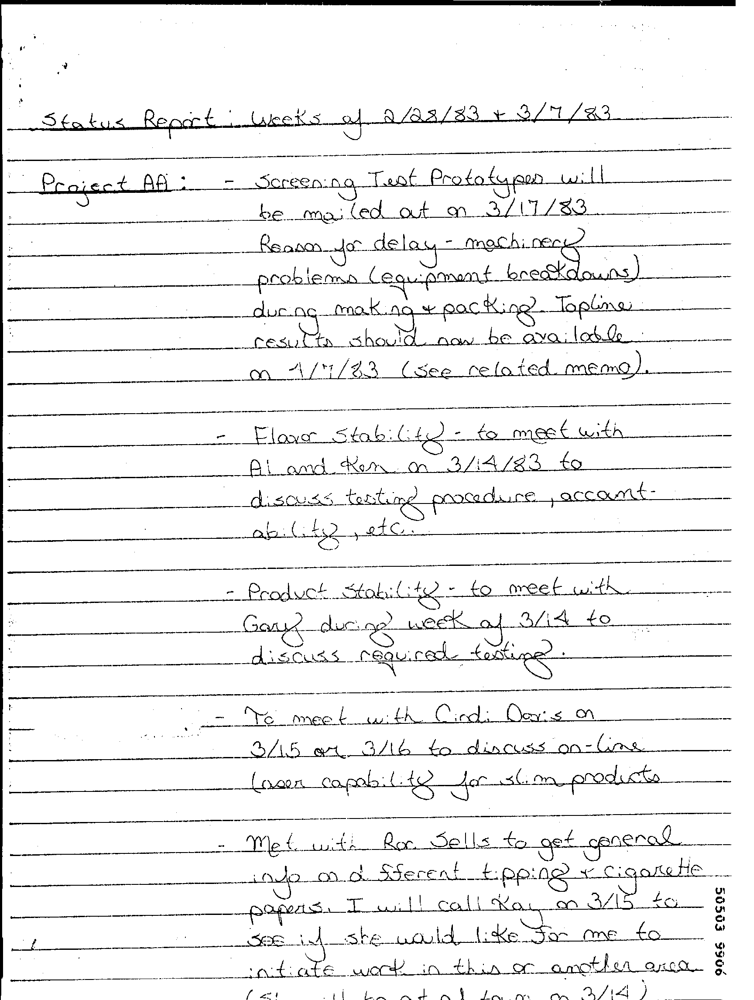 Status Report: Weeks of 2/28/83 + 3/7/83
Project AA: - Screening Test Prototypes will
be mailed out on 3/17/83
Reason for delay - machinery
problems (equipment breakdowns)
during making + packing. Topline
results should now be available
on 4/7/83 (see related memo).
- Flavor Stability - to meet with
Al and Ken on 3/14/83 to
discuss testing procedure, account-
ability, etc.
- Product Stability - to meet with
Gary during week of 3/14 to
discuss required testing.
- To meet with Cindi Davis on
3/15 or 3/16 to discuss on-line
laser capability for slim products
- Met with Ron Sells to get general
info on different tipping + cigarette
papers. I will call Kay on 3/15 to
see if she would like for me to
initiate work in this or another area
on 3/14)
50503 9906